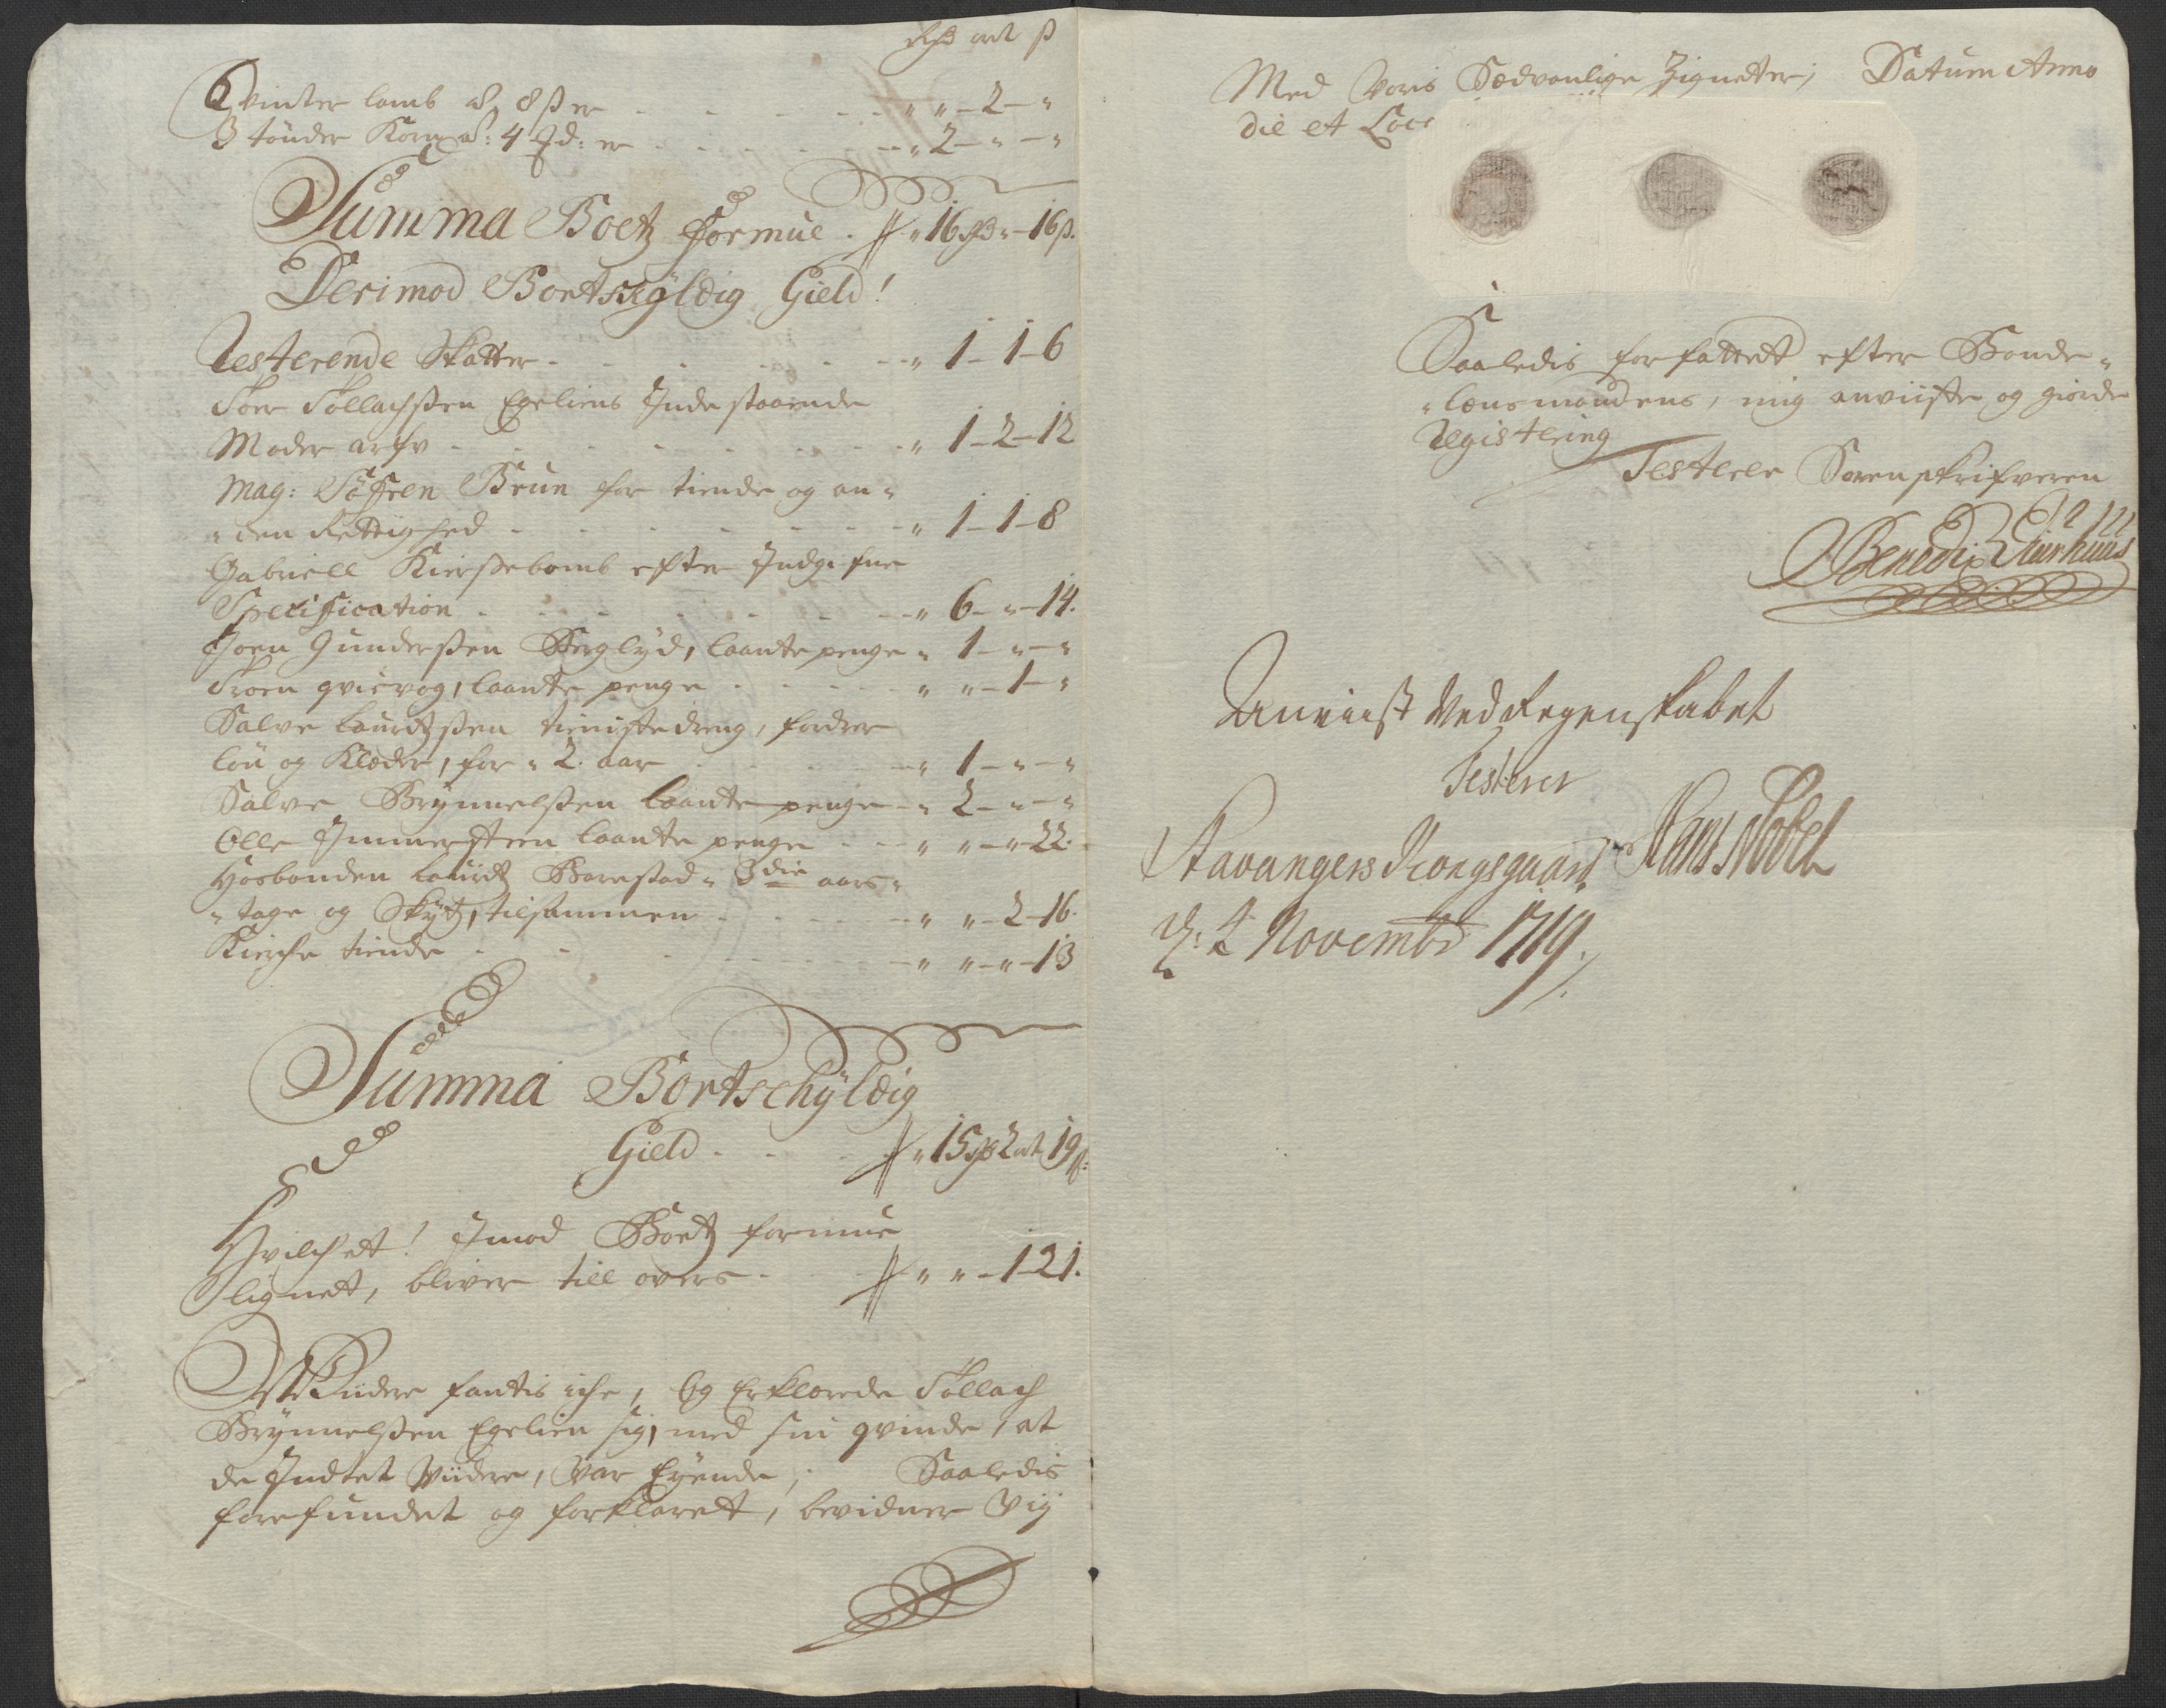 ort ß
6 vinter lamb a 8 ß er - - - " " - 2 - "
3 tønder Korn a: 4 er - - - " 2 - " - "
Summa Boetz Formue . " 16 " - 16 ß.
Derimod Bortskyldig Gield!
Resterende Skatter - - - " 1 - 1 - 6
Tollachßen Egeliens Indestaaende
Moder arfv - - - " 1 - 2 - 12
Mag: Søffren Brun for tiende og an "
" den Rettighed - - - " 1 - 1 - 8
Gabriell Kierßebomb efter Indgifne
Specification - - - " 6 - " - 14.
Joen Gunderßen Berglyd, laante penge " 1 - " - "
laante penge - - - " " - 1 - "
Salve Lauridtzßen tienistedreng, fordrer
løn og Klæder, for " 2. aar - - - " 1 - " - "
Salve Brynnelßen laante penge - " 2 - " - "
Olle laante penge - - " " - " 22.
Hosbonden Lauridtz Borestad " 3die aars "
" tage og Skytz, tilsammen - - - " " - 2 - 16.
Kirche tiende - - - " " - " - 13
Summa Bortschyldig
Gield - - - " 15 2 ort 19 ß:
Hvilchet! Imod Boetz formue
lignet, bliver till overs - " " - 1 21.
Viidere fantis iche, Og Erklærede Tollach
Brynnelßen Egelien sig, med sin qvinde, at
de Indtet Viidere, var Eyende, Saaledis
forefundet og forklaret, bevidner Vij
Med Voris Sædvanlige Zigneter, Datum Anno
die et Loco
Saaledis forfattet efter Bonde "
" lænsmandens, mig anviiste og giorde
Registering
Testerer Sorenskrifveren
Benedix Stiurhuus
Anviist Ved Regenskabet
Testerer
Stavangers Kongsgaard Hans Nobel
d: 4 Novembr 1719.